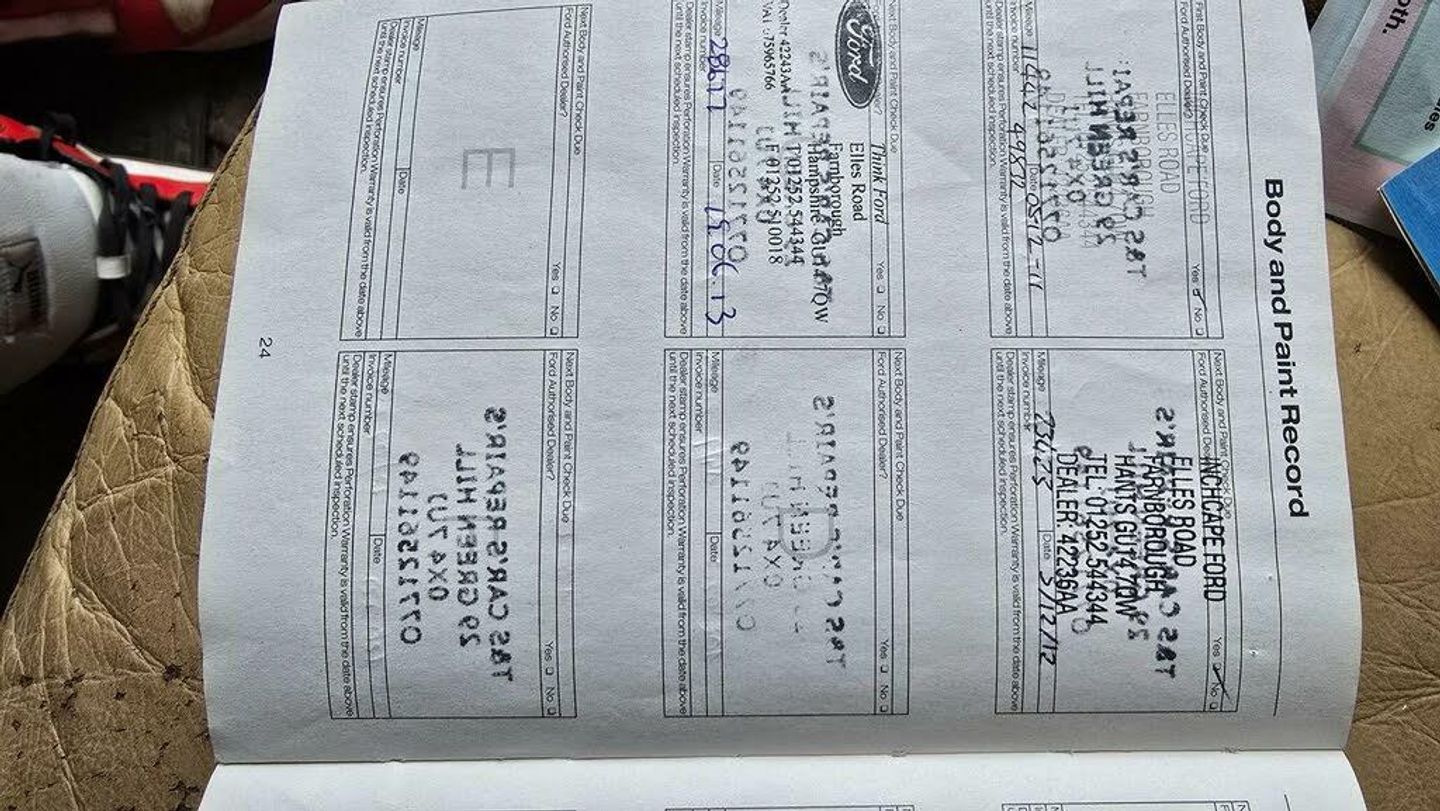 Body and Paint Record
First Body and Paint Check Due
Ford Authorised Dealer? Yes No
ELLES ROAD
FARNBOROUGH
T&S CAR'S REPAI
29 GREEN HILL
Mileage 11442 Date 05-12-11
Invoice number 49812
Dealer stamp ensures Perforation Warranty is valid from the date above
until the next scheduled inspection.
Next Body and Paint Check Due
Ford Authorised Dealer? Yes No
INCHCAPE FORD
ELLES ROAD
FARNBOROUGH
HANTS GU14 7QW
TEL: 01252 544344
DEALER: 42236AA
Mileage 23425 Date 5/12/12
Invoice number
Dealer stamp ensures Perforation Warranty is valid from the date above
until the next scheduled inspection.
Next Body and Paint Check Due
Ford Authorised Dealer? Yes No
Ford
Think Ford
Elles Road
Farnborough
Hampshire GU14 7QW
T 01252 544344
F 01252 510018
Mileage 28677 Date
Invoice number
Dealer stamp ensures Perforation Warranty is valid from the date above
until the next scheduled inspection.
Next Body and Paint Check Due
Ford Authorised Dealer? Yes No
T&S CAR'S REPAIR'S
CU7 4XO
Mileage Date
Invoice number
Dealer stamp ensures Perforation Warranty is valid from the date above
until the next scheduled inspection.
Next Body and Paint Check Due
Ford Authorised Dealer? Yes No
E
Mileage Date
Invoice number
Dealer stamp ensures Perforation Warranty is valid from the date above
until the next scheduled inspection.
Next Body and Paint Check Due
Ford Authorised Dealer? Yes No
T&S CAR'S REPAIR'S
29 GREEN HILL
CU7 4XO
07712561149
Mileage Date
Invoice number
Dealer stamp ensures Perforation Warranty is valid from the date above
until the next scheduled inspection.
24
oth.